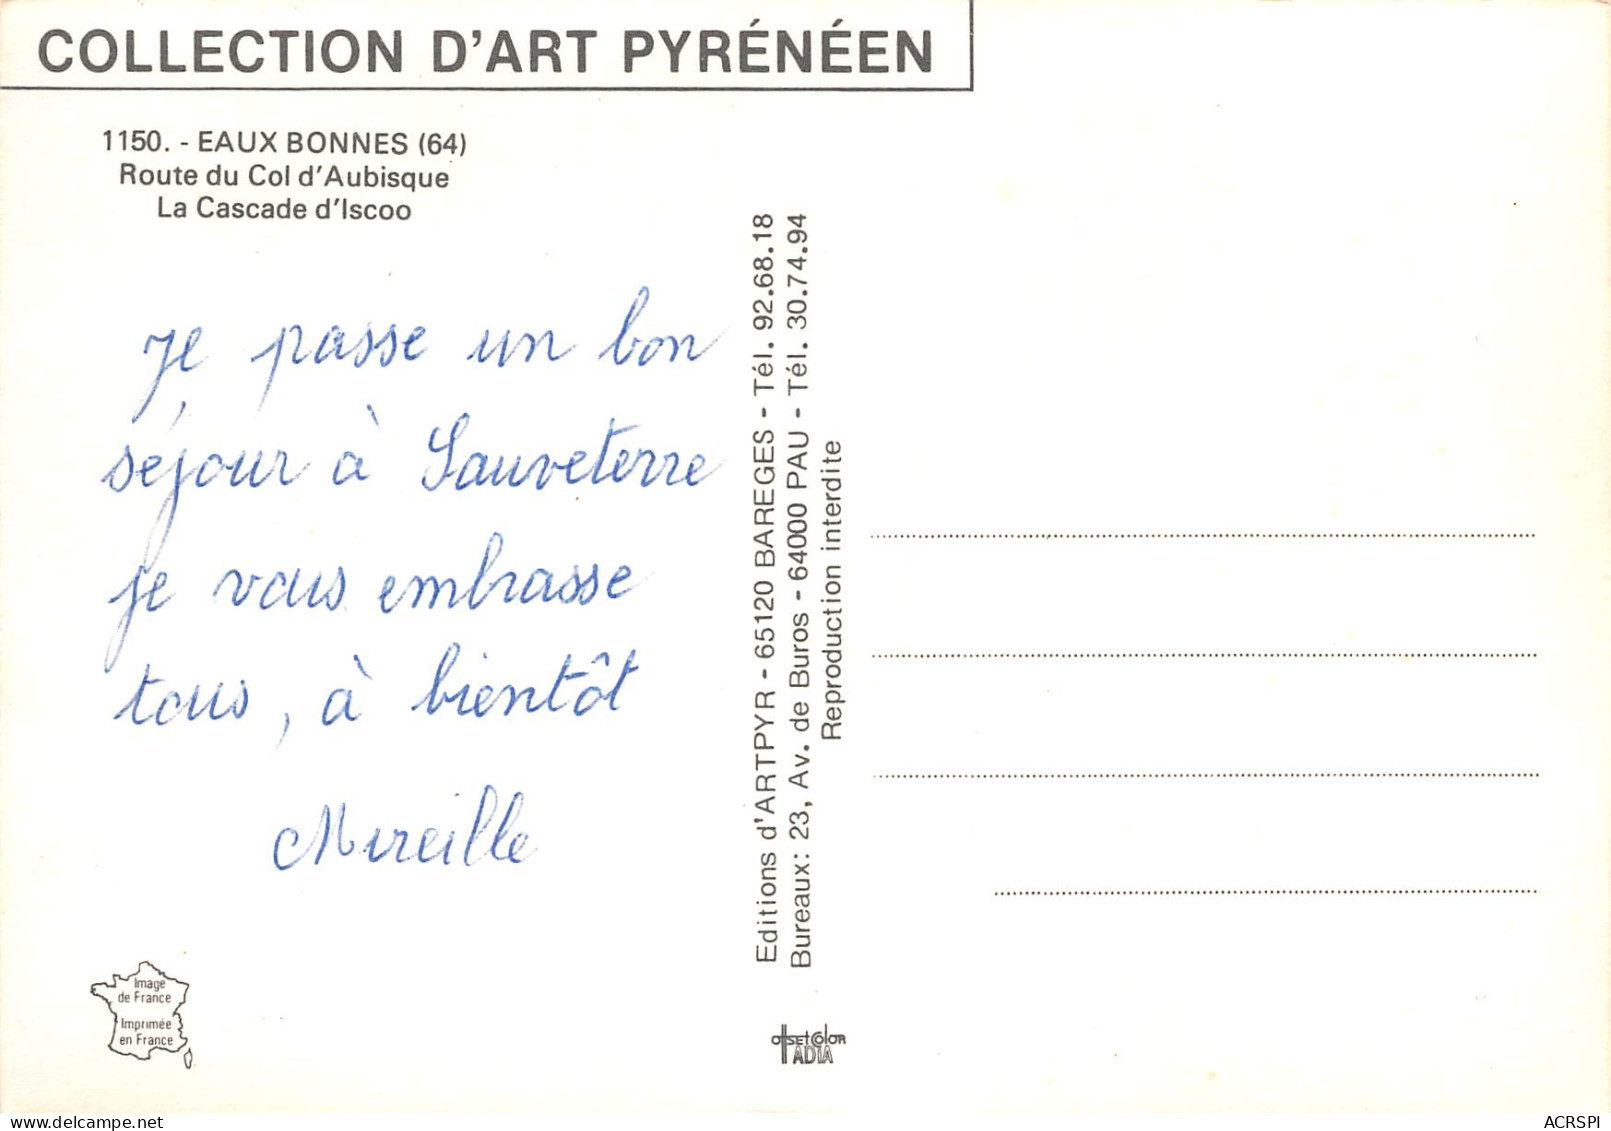 COLLECTION D'ART PYRÉNÉEN
1150. - EAUX BONNES (64)
Route du Col d'Aubisque
La Cascade d'Iscoo
Je passe un bon
séjour à Sauveterre
je vous embrasse
tous, à bientôt
Mireille
Editions d'ARTPYR - 65120 BAREGES - Tél. 92.68.18
Bureaux: 23, Av. de Buros - 64000 PAU - Tél. 30.74.94
Reproduction interdite
Image
de France
Imprimée
en France
OffSET COlOR
ADIA
ACRSPI